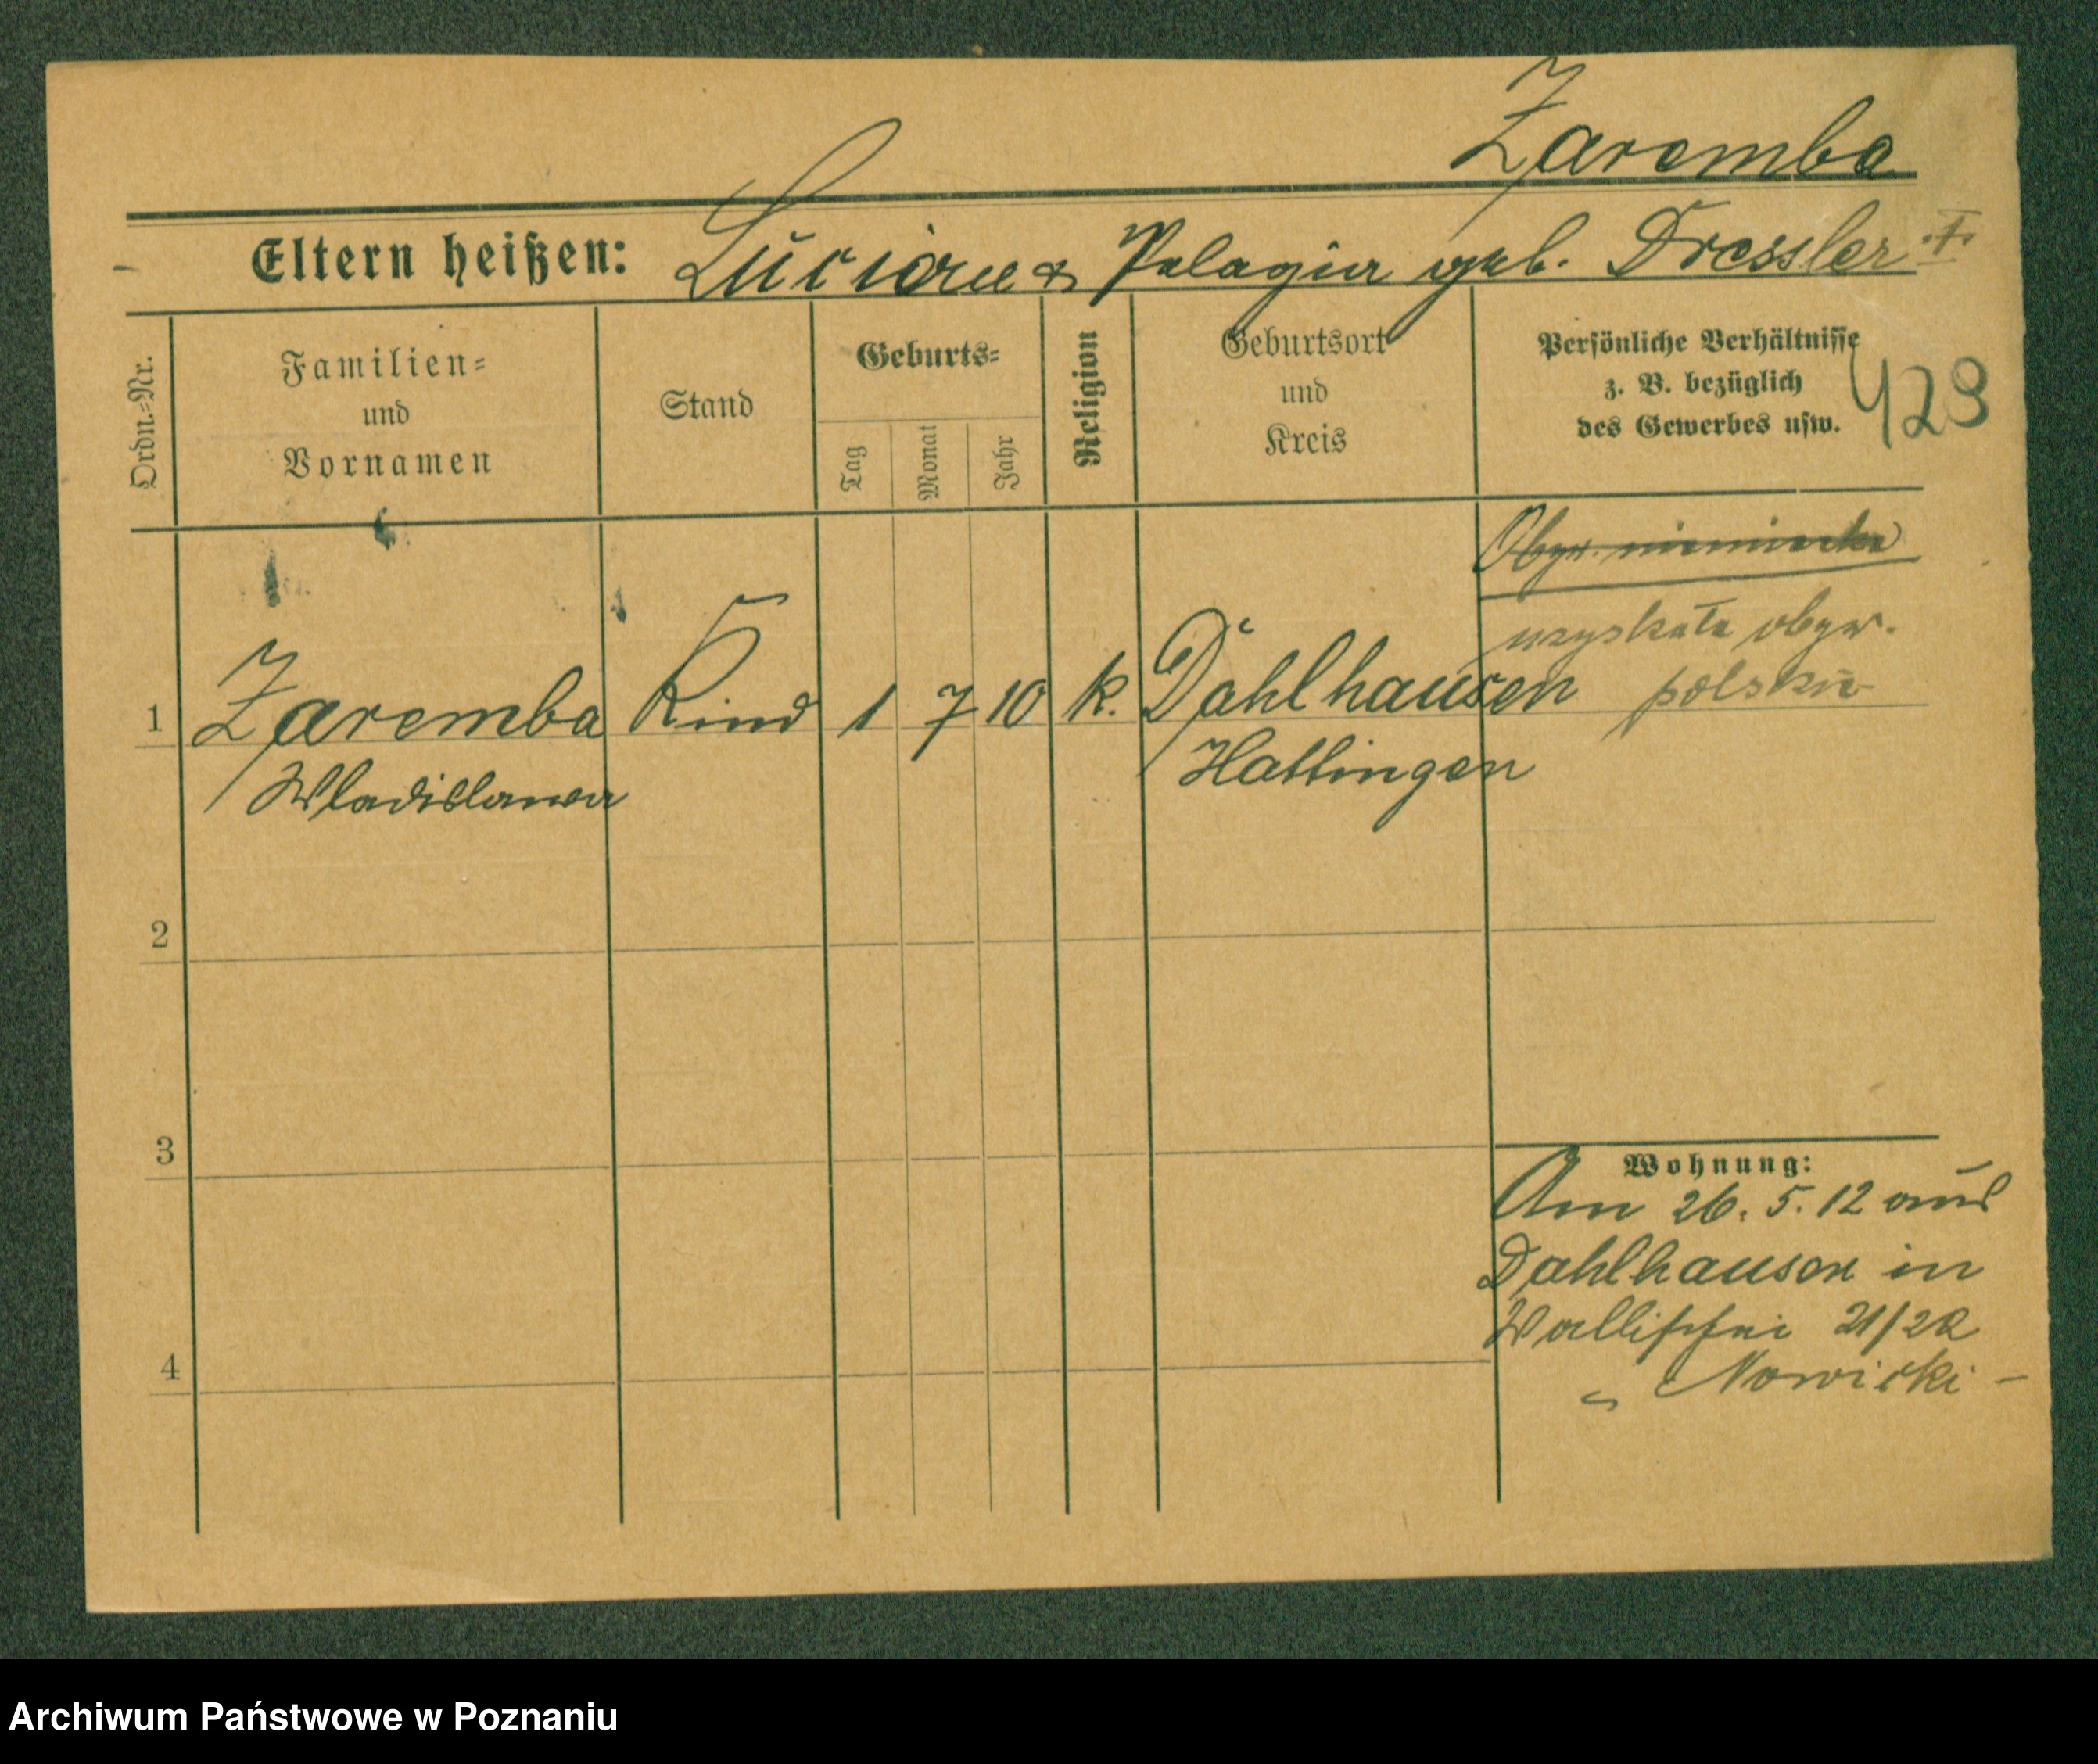 Zaremba
Eltern heißen: Lucian & Pelagia geb. Dressler
Ordn.-Nr.
Familien-
und
Vornamen
Stand
Geburts-
Tag
Monat
Jahr
Religion
Geburtsort
und
Kreis
Persönliche Verhältnisse
z. B. bezüglich
des Gewerbes usw.
423
Obyw. niemiecka
uzyskała obyw.
polskie
1 Zaremba Kind 1 7 10 k. Dahlhausen
Wladislawa Hattingen
2
3
Wohnung:
Am 26. 5. 12 aus
Dahlhausen in
Wallischei 21/22
Nowicki
4
Archiwum Państwowe w Poznaniu